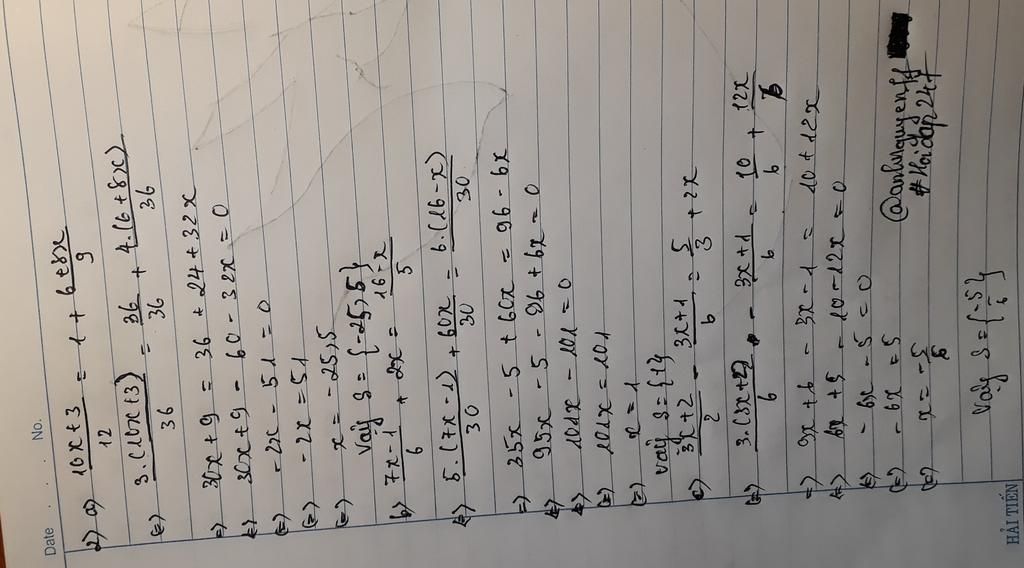 Date No.
2) a) \frac{10x+3}{12} = 1 + \frac{6+8x}{9}
(=) \frac{3.(10x+3)}{36} = \frac{36}{36} + \frac{4(6+8x)}{36}
=) 30x+9 = 36 + 24+32x
(=) 30x+9 - 60 - 32x = 0
(=) -2x - 51 = 0
(=) -2x = 51
(=) x = -25,5
Vaäy S = {-25,5}
b) \frac{7x-1}{6} + 2x = \frac{16-x}{5}
(=) \frac{5.(7x-1)}{30} + \frac{60x}{30} = \frac{6.(16-x)}{30}
=) 35x - 5 + 60x = 96 - 6x
(=) 95x - 5 - 96 + 6x = 0
(=) 101x - 101 = 0
(=) 101x = 101
(=) x = 1
Vậy S = {1}
c) \frac{3x+2}{2} - \frac{3x+1}{6} = \frac{5}{3} + 2x
(=) \frac{3.(3x+2)}{6} - \frac{3x+1}{6} = \frac{10}{6} + \frac{12x}{6}
=) 9x+6 - 3x - 1 = 10 + 12x
(=) 6x + 5 - 10 - 12x = 0
(=) - 6x - 5 = 0
(=) - 6x = 5
(=) x = -\frac{5}{6}
@anhnguyenff
#Hoidap247
Vậy S = {\frac{-5}{6}}
HẢI TIẾN